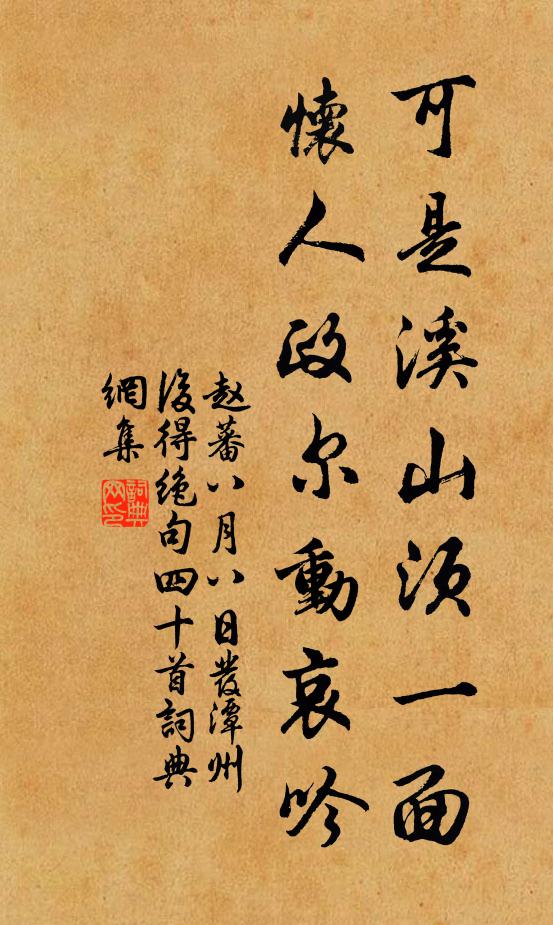 可是溪山須一面
懷人政尔動哀吟
赵蕃八月八日發潭州
後得絶句四十首詞典
網集
詞典
网印